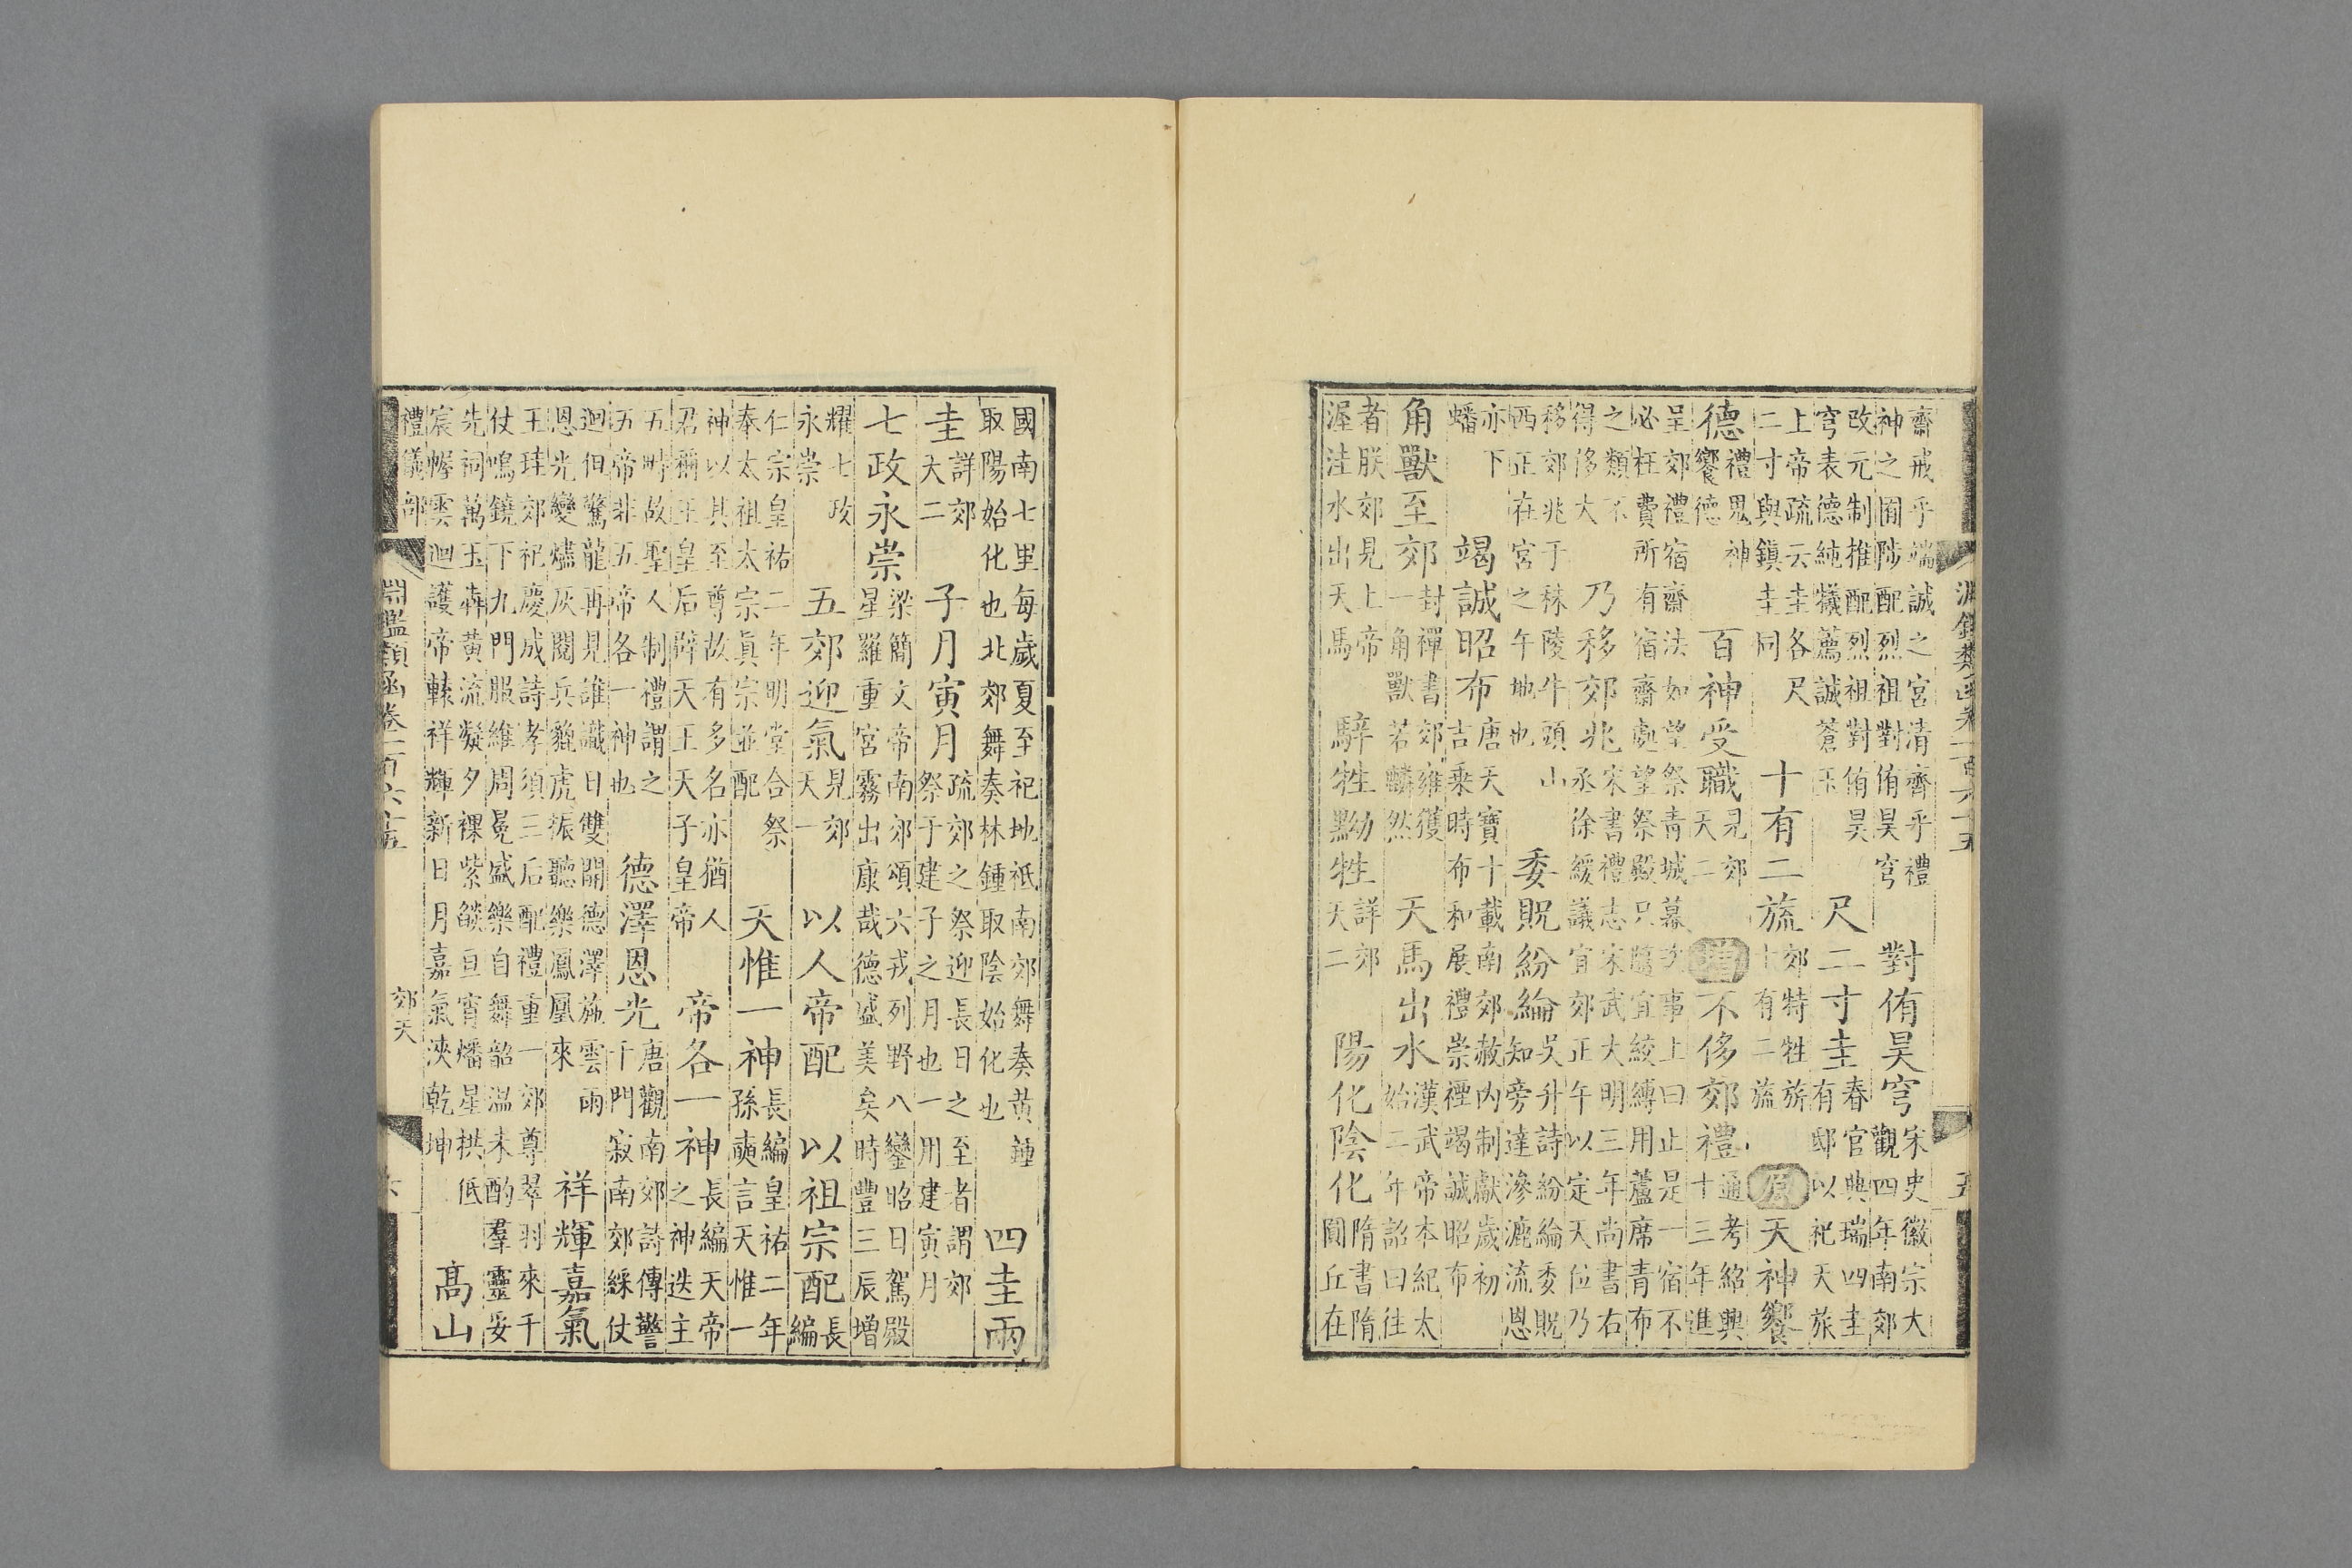 淵鑑類函卷一百六十五 五
齋戒乎端誠之宮清齊乎禮
神之囿陟配烈祖對侑昊穹
對侑昊穹
宋史徽宗大
觀四年南郊
改元制推配烈祖對侑昊
穹表德純犧薦誠蒼玉
尺二寸圭
春官典瑞四圭
有邸以祀天旅
上帝疏云圭各尺
二寸與鎮圭同
十有二旒
郊特牲旂
十有二旒
原 天神饗
德
禮鬼神
饗德
百神受職
見郊
天二
增 不侈郊禮
通考紹興
十三年進
呈郊禮宿齋法如望祭青城幕次事上曰止是一宿不
必枉費所有宿齋處望祭殿只隨宜絞縛用蘆席青布
之類不
得侈大
乃移郊兆
宋書禮志宋武大明三年尚書右
丞徐緩議宜郊正午以定天位乃
移郊兆于秣陵牛頭山
西正在宮之午地也
委貺紛綸
吳升詩紛綸委貺
知旁達滲漉流恩
亦下
蟠
竭誠昭布
唐天寶十載南郊赦內制獻歲初
吉乘時布和展禮崇禋竭誠昭布
角獸至郊
封禪書郊雍獲
一角獸若麟然
天馬出水
漢武帝本紀太
始二年詔曰往
者朕郊見上帝
渥洼水出天馬
騂牲黝牲
詳郊
天二
陽化陰化
隋書隋
圜丘在
國南七里每歲夏至祀地祇南郊舞奏黃鍾
取陽始化也北郊舞奏林鍾取陰始化也
四圭兩
圭
詳郊
大二
子月寅月
疏郊之祭迎長日之至者謂郊
祭于建子之月也一用建寅月
七政永崇
梁簡文帝南郊頌六戎列野八鑾昭日駕殿
星羅重宮霧出康哉德盛美矣時豐三辰增
耀七政
永崇
五郊迎氣
見郊
天一
以人帝配 以祖宗配
長
編
仁宗皇祐二年明堂合祭
奉太祖太宗真宗並配
天惟一神
長編皇祐二年
孫奭言天惟一
神以其至尊故有多名亦猶人
君稱王皇后辟天王天子皇帝
帝各一神
長編天帝
之神迭主
五畤故聖人制禮謂之
五帝非五帝各一神也
德澤恩光
唐觀南郊詩傳警
千門寂南郊綵仗
迴但驚龍再見誰識日雙開德澤施雲雨
恩光變燼灰閱兵貔虎振聽樂鳳凰來
祥輝嘉氣
王珪郊祀慶成詩孝須三后配禮重一郊尊翠羽來千
仗鳴鐃下九門服維周冕盛樂自舞韶溫未酌羣靈妥
先祠萬玉犇黃流凝夕祼紫燄亘宵燔星拱低
宸幄雲迴護帝轅祥輝新日月嘉氣浹乾坤
高山
禮儀部 淵鑑類函卷一百六十五 郊天 六